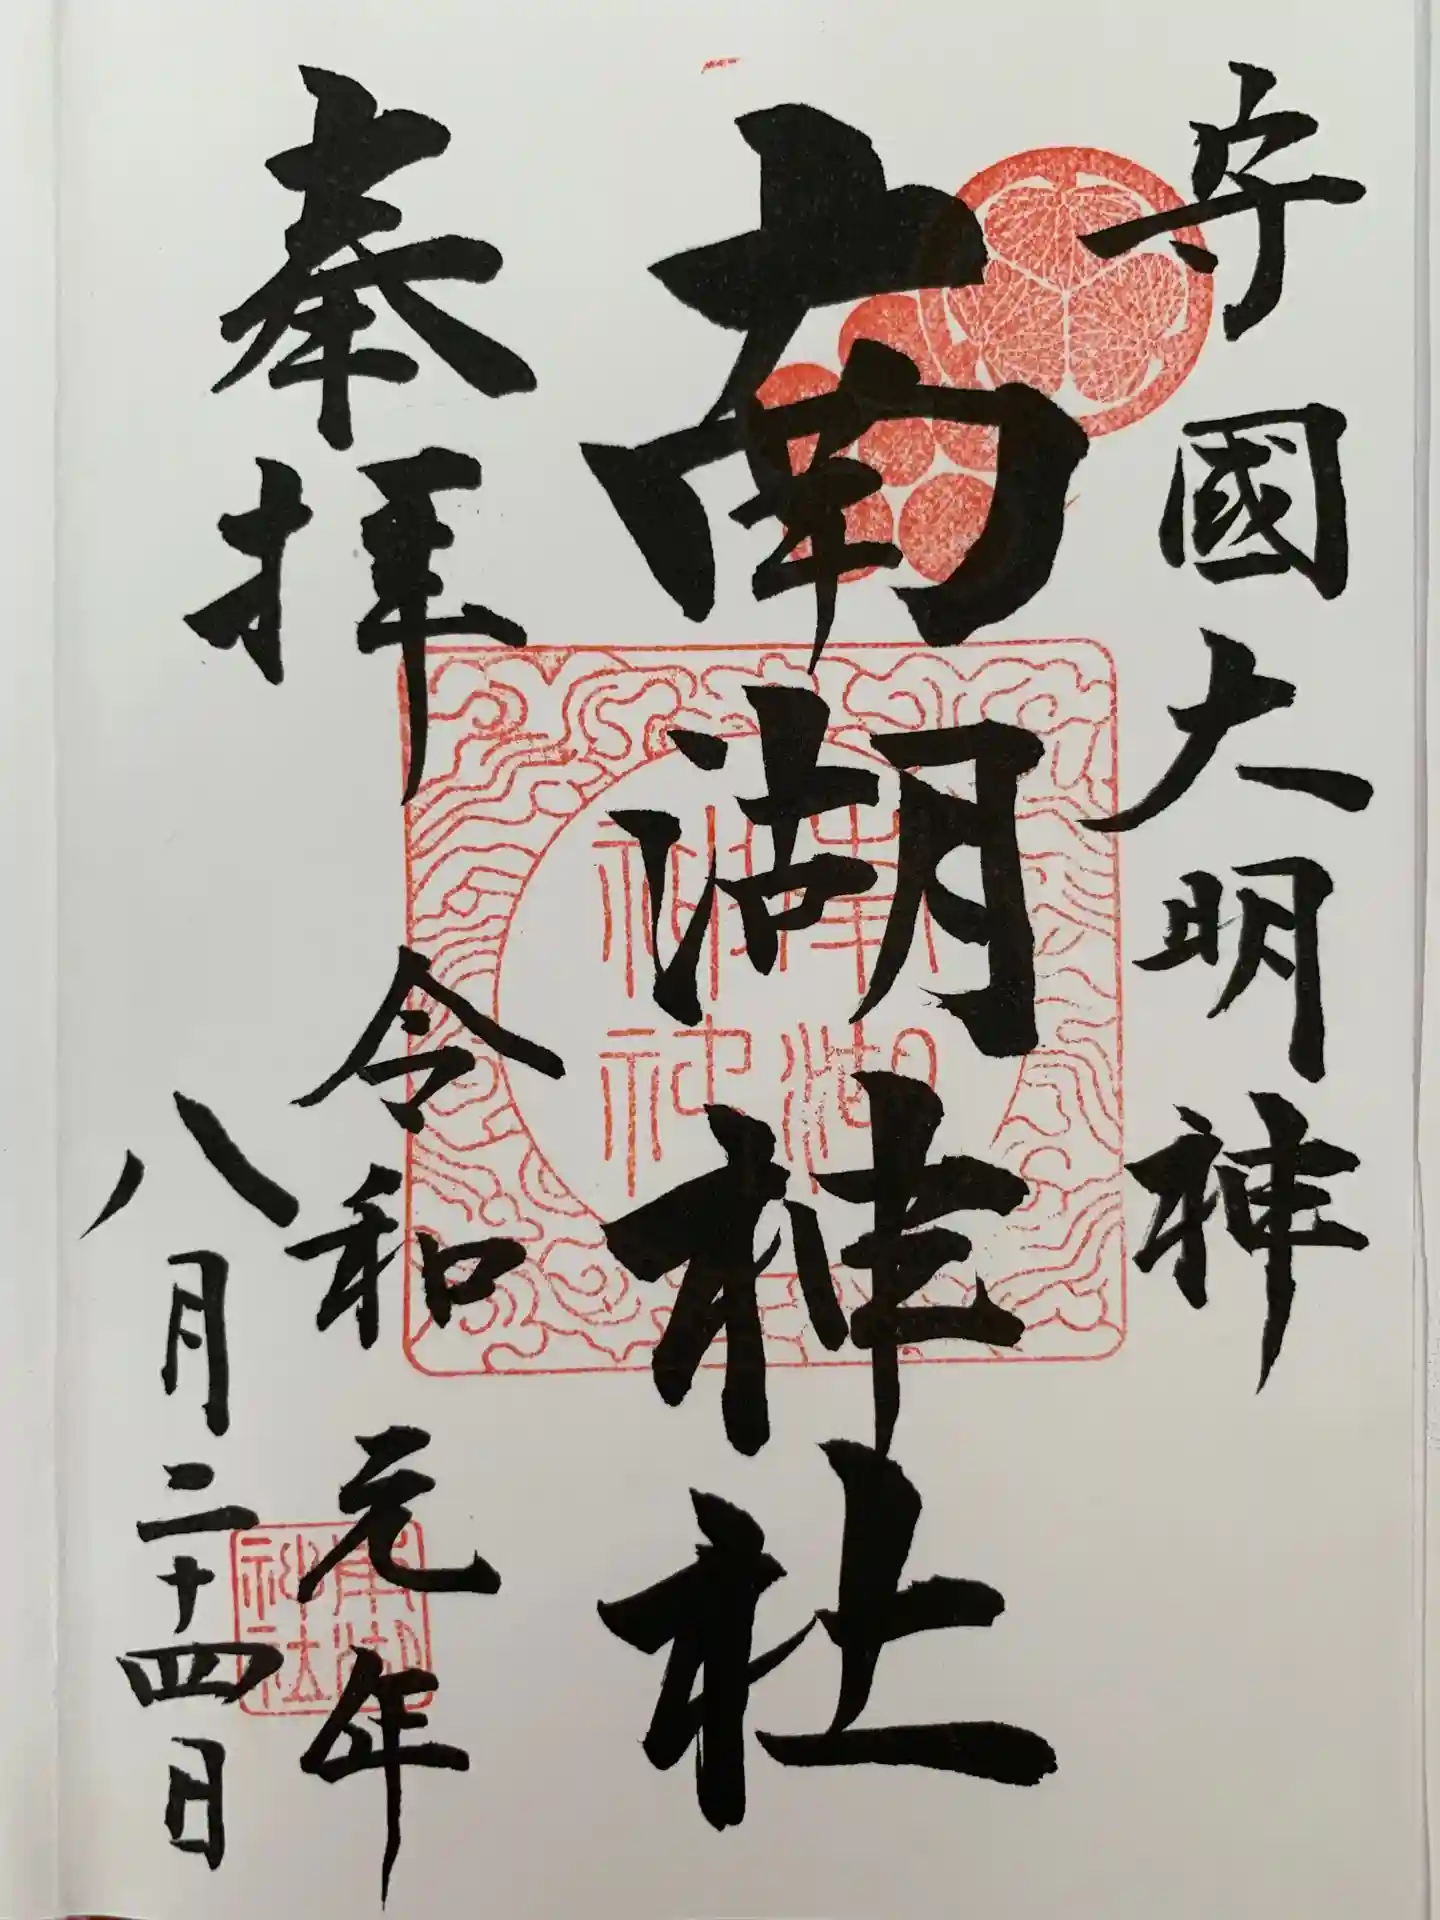 守國大明神
南湖神社
奉拝
令和元年
八月二十四日
南湖神社
南湖神社